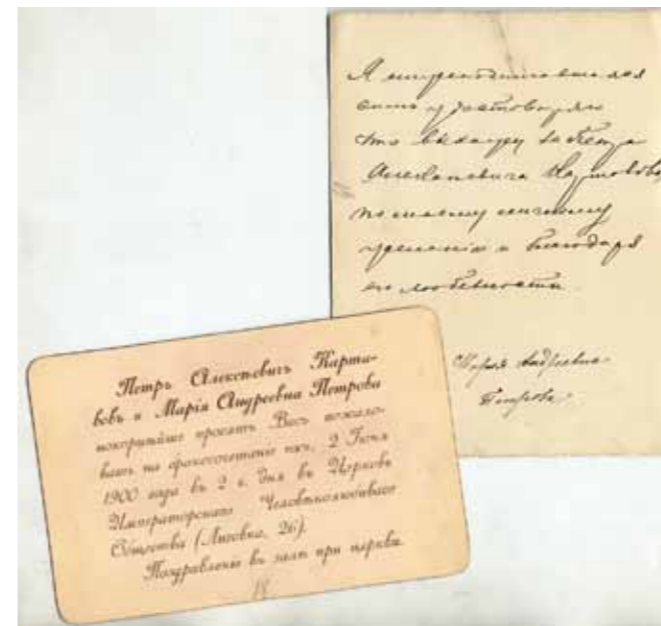 Я
симъ удостовѣряю
что выхожу за Петра
Алексѣевича Картавова
по моему личному
желанію и благодаря
его любезности.
Марія Андреевна
Петрова.
Петръ Алексѣевичъ Карта-
вовъ и Марія Андреевна Петрова
покорнѣйше просятъ Васъ пожало-
вать на бракосочетаніе ихъ, 2 Іюня
1900 года въ 2 ч. дня въ Церковь
Императорскаго Человѣколюбиваго
Общества (Лиговка, 26).
Поздравленіе въ залѣ при церкви.
18